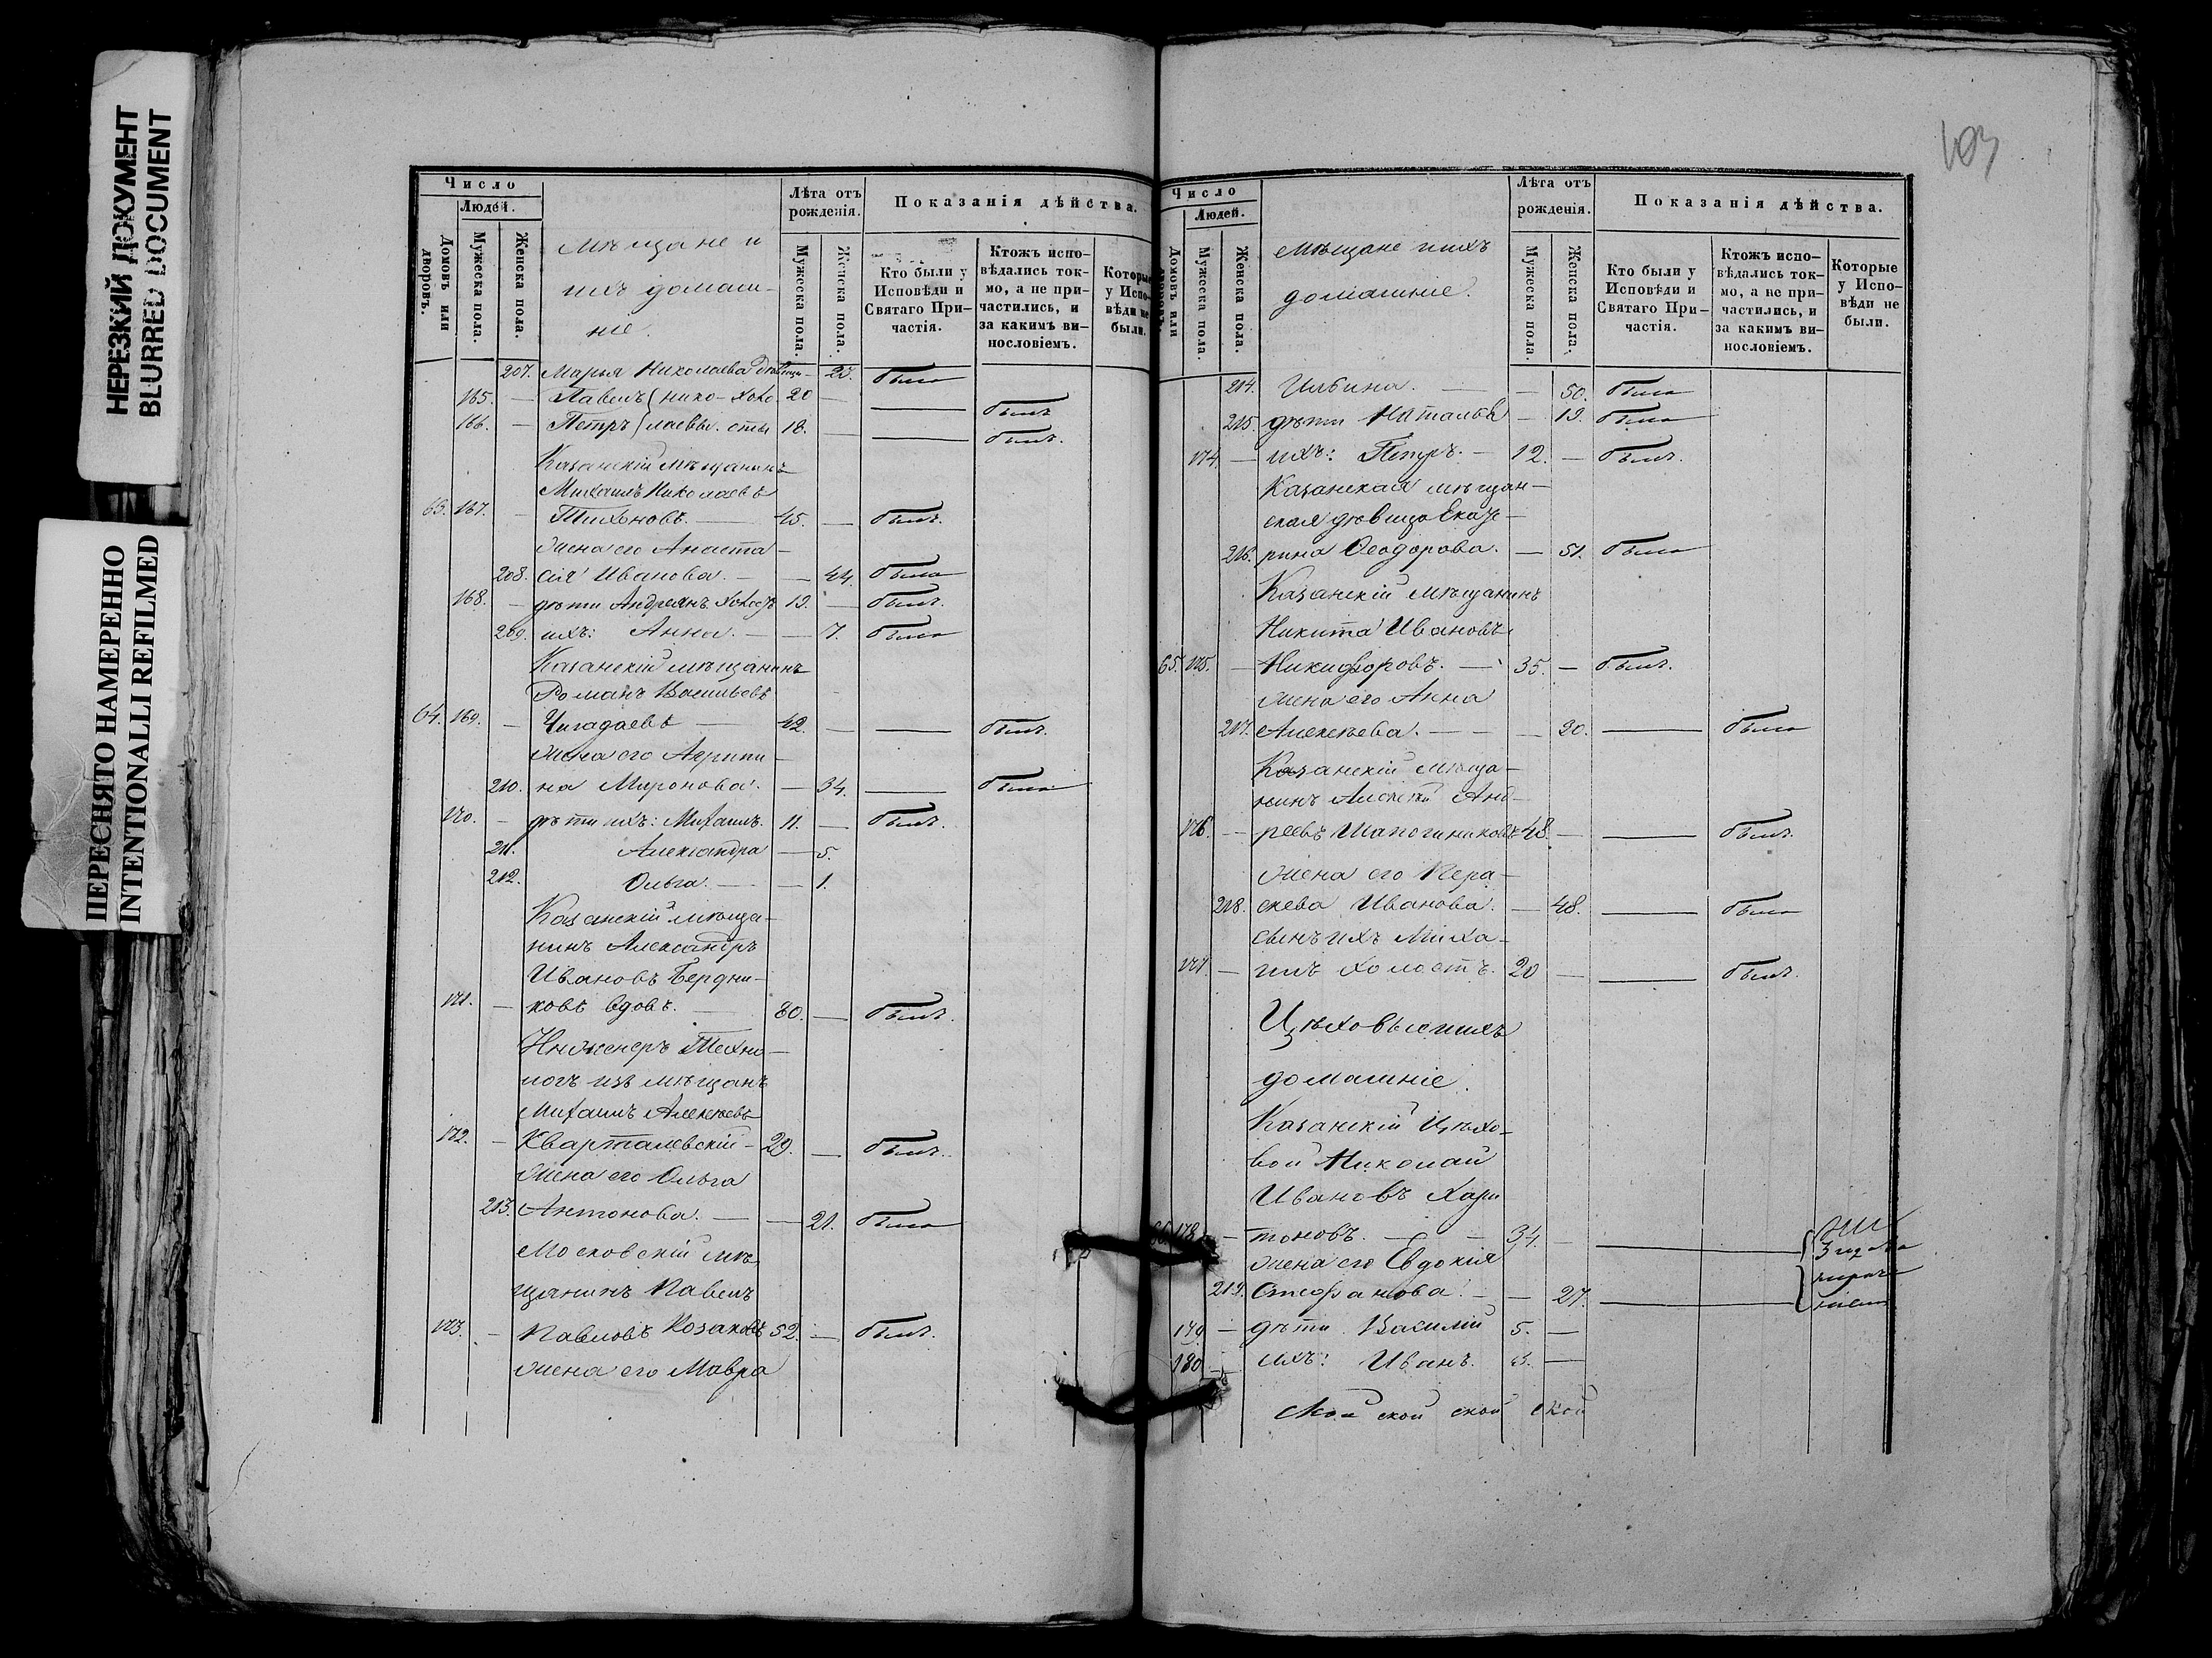 НЕРЕЗКИЙ ДОКУМЕНТ
BLURRED DOCUMENT
ПЕРЕСНЯТО НАМЕРЕННО
INTENTIONALLI REFILMED
Число
Людей.
Домовъ или дворовъ.
Мужеска пола.
Женска пола.
Мѣщане и
ихъ домаш-
ніе.
Лѣта отъ рожденія.
Мужеска пола.
Женска пола.
Показанія дѣйства.
Кто были у Исповѣди и Святаго Причастія.
Ктожъ исповѣдались токмо, а не причастились, и за какимъ винословіемъ.
Которые у Исповѣди не были.
207. Марья Николаева — была
165. — Павелъ { нико- холо 20 — былъ
166. — Петръ { лаевы. сты 18. — былъ.
Казанскій мѣщанинъ
Михаилъ Николаевъ
63. 167. — Тихоновъ. — 45. — былъ.
жена его Анаста-
208. сія Иванова. — — 44. была
168. — дѣти Андреянъ холостъ 19. — былъ.
209. ихъ: Анна. — — 7. была
Казанскій мѣщанинъ
Романъ Васильевъ
64. 169. — Чигадаевъ — 42. — былъ.
жена его Агрипи-
210. на Миронова. — 34. — была
170. — дѣти ихъ: Михаилъ. 11. — былъ.
211. Александра — 5.
212. Ольга. — — 1.
Казанскій мѣща-
нинъ Александръ
Ивановъ Бердни-
171. — ковъ вдовъ. — 80. — былъ.
Инженеръ Техно-
логъ изъ мѣщанъ
Михаилъ Алексѣевъ
172. — Кварталевскій — 29. — былъ.
жена его Ольга
213. Антонова. — — 21. была
Московскій мѣ-
щанинъ Павелъ
173. — Павловъ Козаковъ 52. — былъ.
жена его Мавра
103
Число
Людей.
Домовъ или дворовъ.
Мужеска пола.
Женска пола.
Мѣщане и ихъ
домашніе.
Лѣта отъ рожденія.
Мужеска пола.
Женска пола.
Показанія дѣйства.
Кто были у Исповѣди и Святаго Причастія.
Ктожъ исповѣдались токмо, а не причастились, и за какимъ винословіемъ.
Которые у Исповѣди не были.
214. Ильина. — — 50. была
215. дѣти Наталья — 19. была
174. — ихъ: Петръ. — 12. — былъ.
Казанская мѣщан-
ская дѣвица Екате-
216. рина Ѳеодорова. — 51. была
Казанскій мѣщанинъ
Никита Ивановъ
65. 175. — Никифоровъ. — 35. — былъ.
жена его Анна
217. Алексѣева. — — — 30. — была
Казанскій мѣща-
нинъ Алексѣй Анд-
176. — реевъ Шапошниковъ 48. — — былъ.
жена его Пера-
218. скева Иванова. — 48. — была
сынъ ихъ Миха-
177. — илъ холостъ. 20 — — былъ.
Цѣховые и ихъ
домашніе.
Казанскій Цѣхо-
вой Николай
Ивановъ Хари
66. 178. — тоновъ. — — 34. —
жена его Евдокія
219. Стефанова. — — 27. —
3 года
179. — дѣти Василій 5. —
180. — ихъ: Иванъ. 3. —
ской ской ской